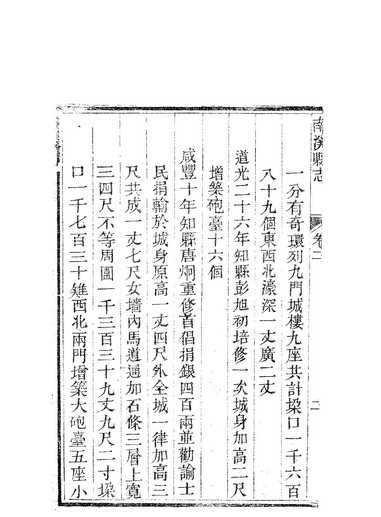 南溪縣志
卷二
二
一分有奇環列九門城樓九座共計垜口一千六百
八十九個東西北濠深一丈廣二丈
道光二十六年知縣彭旭初培修一次城身加高二尺
增築砲臺十六個
咸豐十年知縣唐炯重修首倡捐銀四百兩並勸諭士
民捐輸於城身原高一丈四尺外全城一律加高三
尺共成一丈七尺女墻內馬道通加石條三層上寬
三四尺不等周圍一千三百三十九丈九尺二寸垜
口一千七百三十雉西北兩門增築大砲臺五座小